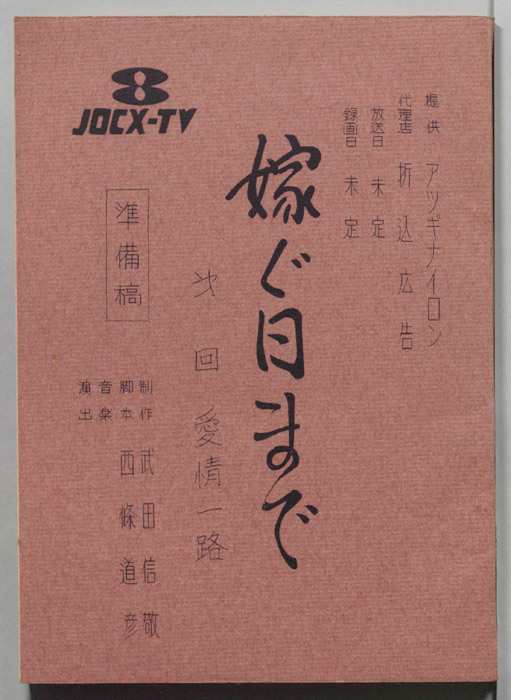 8
JOCX-TV
提供 アツギナイロン
代理店 折込広告
放送日 未定
録画日 未定
嫁ぐ日まで
次回 愛情一路
準備稿
制作 武田信敬
脚本 西條道彦
音楽
演出